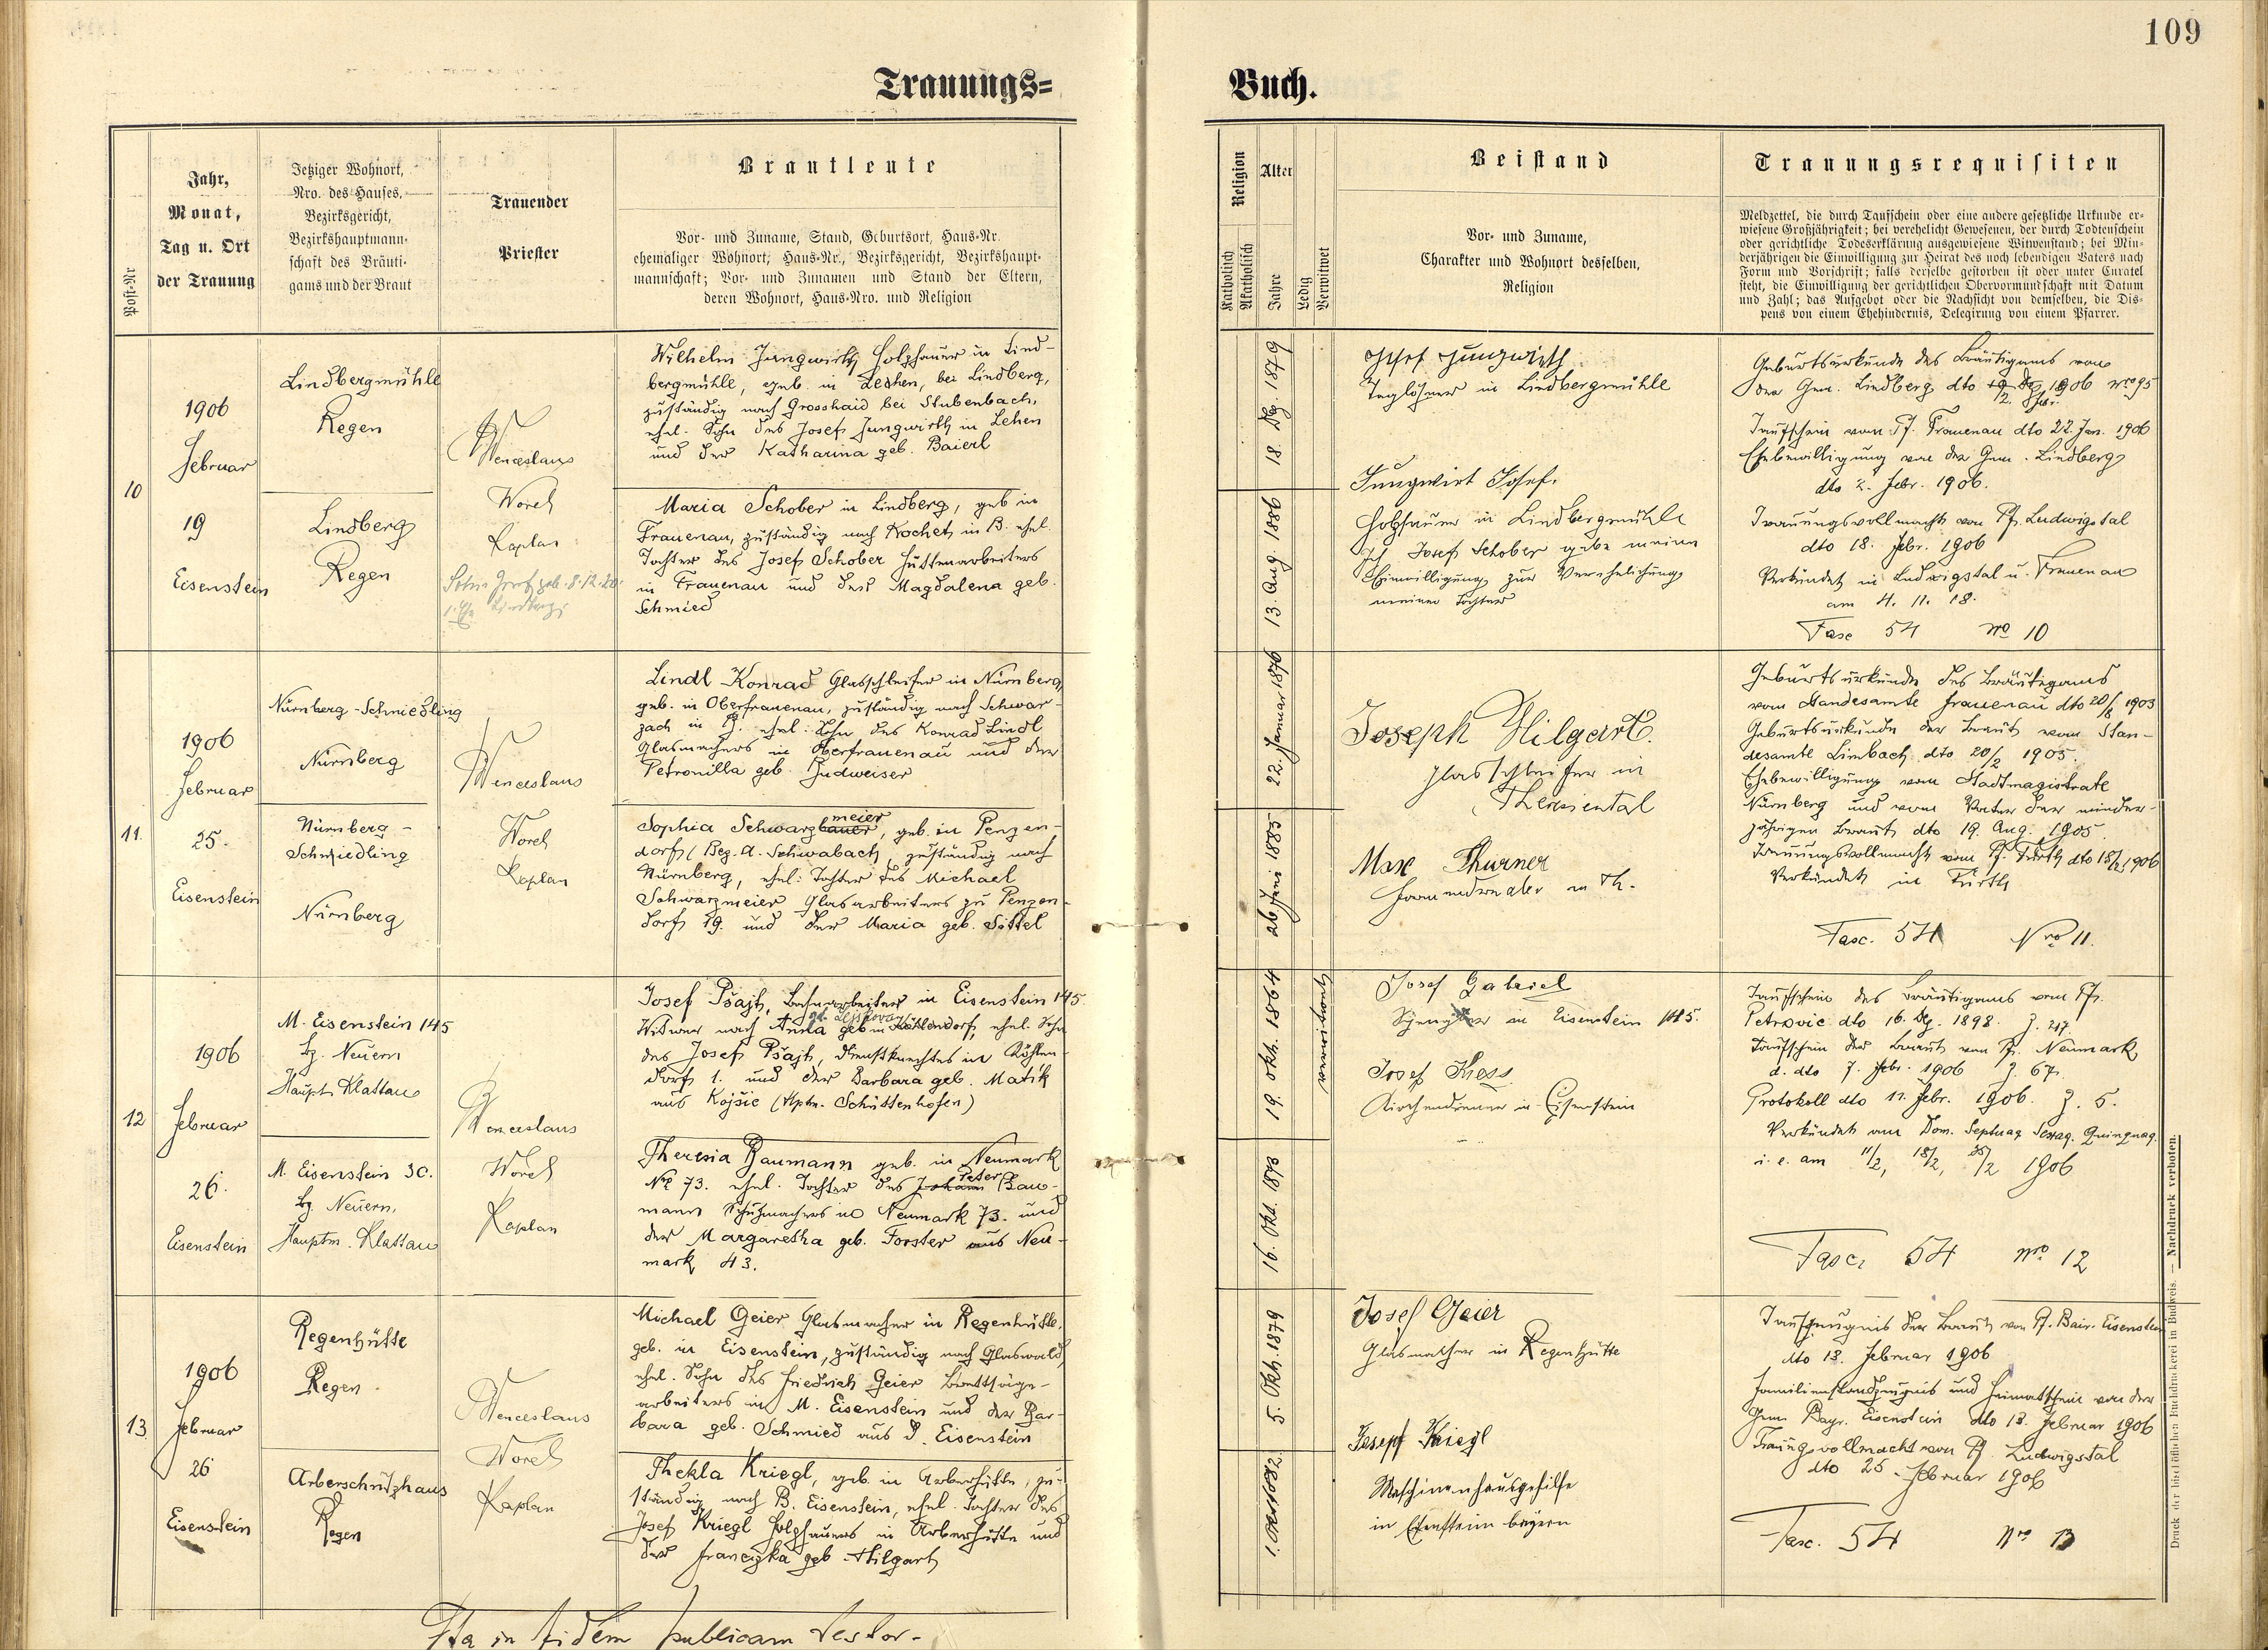 109
Trauungs=
Buch.
Post-Nr
Jahr,
Monat,
Tag u. Ort
der Trauung
Jetziger Wohnort,
Nro. des Hauses,
Bezirksgericht,
Bezirkshauptmann-
schaft des Bräuti-
gams und der Braut
Trauender
Priester
Brautleute
Vor- und Zuname, Stand, Geburtsort, Haus-Nr.
ehemaliger Wohnort; Haus-Nr., Bezirksgericht, Bezirkshaupt-
mannschaft; Vor- und Zunamen und Stand der Eltern,
deren Wohnort, Haus-Nro. und Religion
Religion
Katholisch
Akatholisch
Alter
Jahre
Ledig
Verwitwet
Beistand
Vor- und Zuname,
Charakter und Wohnort desselben,
Religion
Trauungsrequisiten
Meldzettel, die durch Taufschein oder eine andere gesetzliche Urkunde er-
wiesene Großjährigkeit; bei verehelicht Gewesenen, der durch Todtenschein
oder gerichtliche Todeserklärung ausgewiesene Witwenstand; bei Min-
derjährigen die Einwilligung zur Heirat des noch lebendigen Vaters nach
Form und Vorschrift; falls derselbe gestorben ist oder unter Curatel
steht, die Einwilligung der gerichtlichen Obervormundschaft mit Datum
und Zahl; das Aufgebot oder die Nachsicht von demselben, die Dis-
pens von einem Ehehindernis, Delegirung von einem Pfarrer.
10
1906
Februar
19
Eisenstein
Lindbergmühle
Regen
Lindberg
Regen
Wenceslaus
Worel
Kaplan
Wilhelm Jungwirth Holzhauer in Lind-
bergmühle, geb. in Lechen, bei Lindberg,
zuständig nach Grosshaid bei Stubenbach,
ehel. Sohn des Josef Jungwirth in Lehen
und der Katharina geb. Baierl
Maria Schober in Lindberg, geb in
Frauenau, zuständig nach Kochet in B. ehel.
Tochter des Josef Schober Hüttenarbeiters
in Frauenau und der Magdalena geb.
Schmied
18. Dez. 1879
13. Aug. 1886
Josef Jungwirth
Taglöhner in Lindbergmühle
Jungwirt Josef.
Holzhauer in Lindbergmühle
Ich Josef Schober gebe meine
Einwilligung zur Verehelichung
meiner Tochter
Geburtsurkunde des Bräutigams von
der Gem. Lindberg dto 1906 nro 95
2. Febr.
Taufschein vom Pf. Frauenau dto 22. Jan. 1906
Ehebewilligung von der Gem. Lindberg
dto 2. Febr. 1906.
Trauungsvollmacht von Pf. Ludwigstal
dto 18. Febr. 1906
Verkündet in Ludwigstal u. Frauenau
am 4. 11. 18.
Fasc 54 No 10
11.
1906
Februar
25.
Eisenstein
Nürnberg-Schniedling
Nürnberg
Nürnberg-
Schniedling
Nürnberg
Wenceslaus
Worel
Kaplan
Lindl Konrad Glasschleifer in Nürnberg,
geb. in Oberfrauenau, zuständig nach Schwar-
zach in B. ehel. Sohn des Konrad Lindl
Glasmachers in Oberfrauenau und der
Petronilla geb. Budweiser
meier
Sophia Schwarzbauer, geb. in Penzen-
dorf (Bez. A. Schwabach, zuständig nach
Nürnberg, ehel: Tochter des Michael
Schwarzmeier Glasarbeiters zu Penzen-
dorf 19. und der Maria geb. Sittel
22. Januar 1876
26 Juni 1885
Joseph Hilgart.
Glasschleifer in
Theresiental
Max Thurner
in Th.
Geburtsurkunde des Bräutigams
vom Standesamte Frauenau dto 20/8 1903
Geburtsurkunde der Braut vom Stan-
desamte Limbach dto 20/2 1905.
Ehebewilligung vom Stadtmagistrate
Nürnberg und vom Vater der minder-
jährigen Braut dto 19. Aug. 1905.
Trauungsvollmacht vom Pf. Fürth dto 18/2 1906
Verkündet in Fürth
Fasc. 54 Nro 11.
12
1906
Februar
26.
Eisenstein
M. Eisenstein 145
Bz. Neuern
Hauptm. Klattau
M. Eisenstein 30.
Bz. Neuern,
Hauptm. Klattau
Wenceslaus
Worel
Kaplan
Josef Pšajt, Bahnarbeiter in Eisenstein 145.
Witwer nach Anna geb in Köhlendorf, ehel. Sohn
des Josef Pšajt, Dienstknechtes in Köhlen-
dorf 1. und der Barbara geb. Matik
aus Kojšic (Hptm. Schüttenhofen)
Theresia Baumann geb. in Neumark
Peter
No 73. ehel. Tochter des Johann Bau-
mann Schuhmachers in Neumark 73. und
der Margaretha geb. Forster aus Neu-
mark 43.
19. Okt. 1864
16. Okt. 1873
verwitwet
Josef Gabriel
Spengler in Eisenstein 145.
Josef Kress
Kirchendiener in Eisenstein
Taufschein des Bräutigams vom Pf.
Petrovic dto 16. Dez. 1898. Z. 217.
Taufschein der Braut von Pf. Neumark
d. dto 7. Febr. 1906 Z. 67.
Protokoll dto 11. Febr. 1906. Z. 5.
Verkündet am Dom. Septuag. Sexag. Quinquag.
i. e. am 11/2, 18/2, 25/2 1906
Fasc. 54 nro 12
13
1906
Februar
26
Eisenstein
Regenhütte
Regen
Arberschützhaus
Regen
Wenceslaus
Worel
Kaplan
Michael Geier Glasmacher in Regenhütte,
geb. in Eisenstein, zuständig nach Glaswald,
ehel. Sohn des Friedrich Geier Brettsäge-
arbeiters in M. Eisenstein und der Bar-
bara geb. Schmied aus D. Eisenstein
Thekla Kriegl, geb. in Arberhütte, zu-
ständig nach B. Eisenstein, ehel. Tochter des
Josef Kriegl Holzhauers in Arberhütte und
der Franczka geb. Hilgart
5. Okt. 1879
Josef Geier
Glasmacher in Regenhütte
Josepf Kriegl
Maschinenhausgehilfe
in Eisenstein bayern
Taufzeugnis der Braut von Pf. Bair. Eisenstein
dto 13. Februar 1906
Familienstandzeugnis und Heimatschein von der
Gem. Bayr. Eisenstein dto 13. Februar 1906
Trauungsvollmacht von Pf. Ludwigstal
dto 25. Februar 1906
Fasc. 54 Nro 13
Ita in fidem publicam testor.
Druck der bischöflichen Buchdruckerei in Budweis. — Nachdruck verboten.